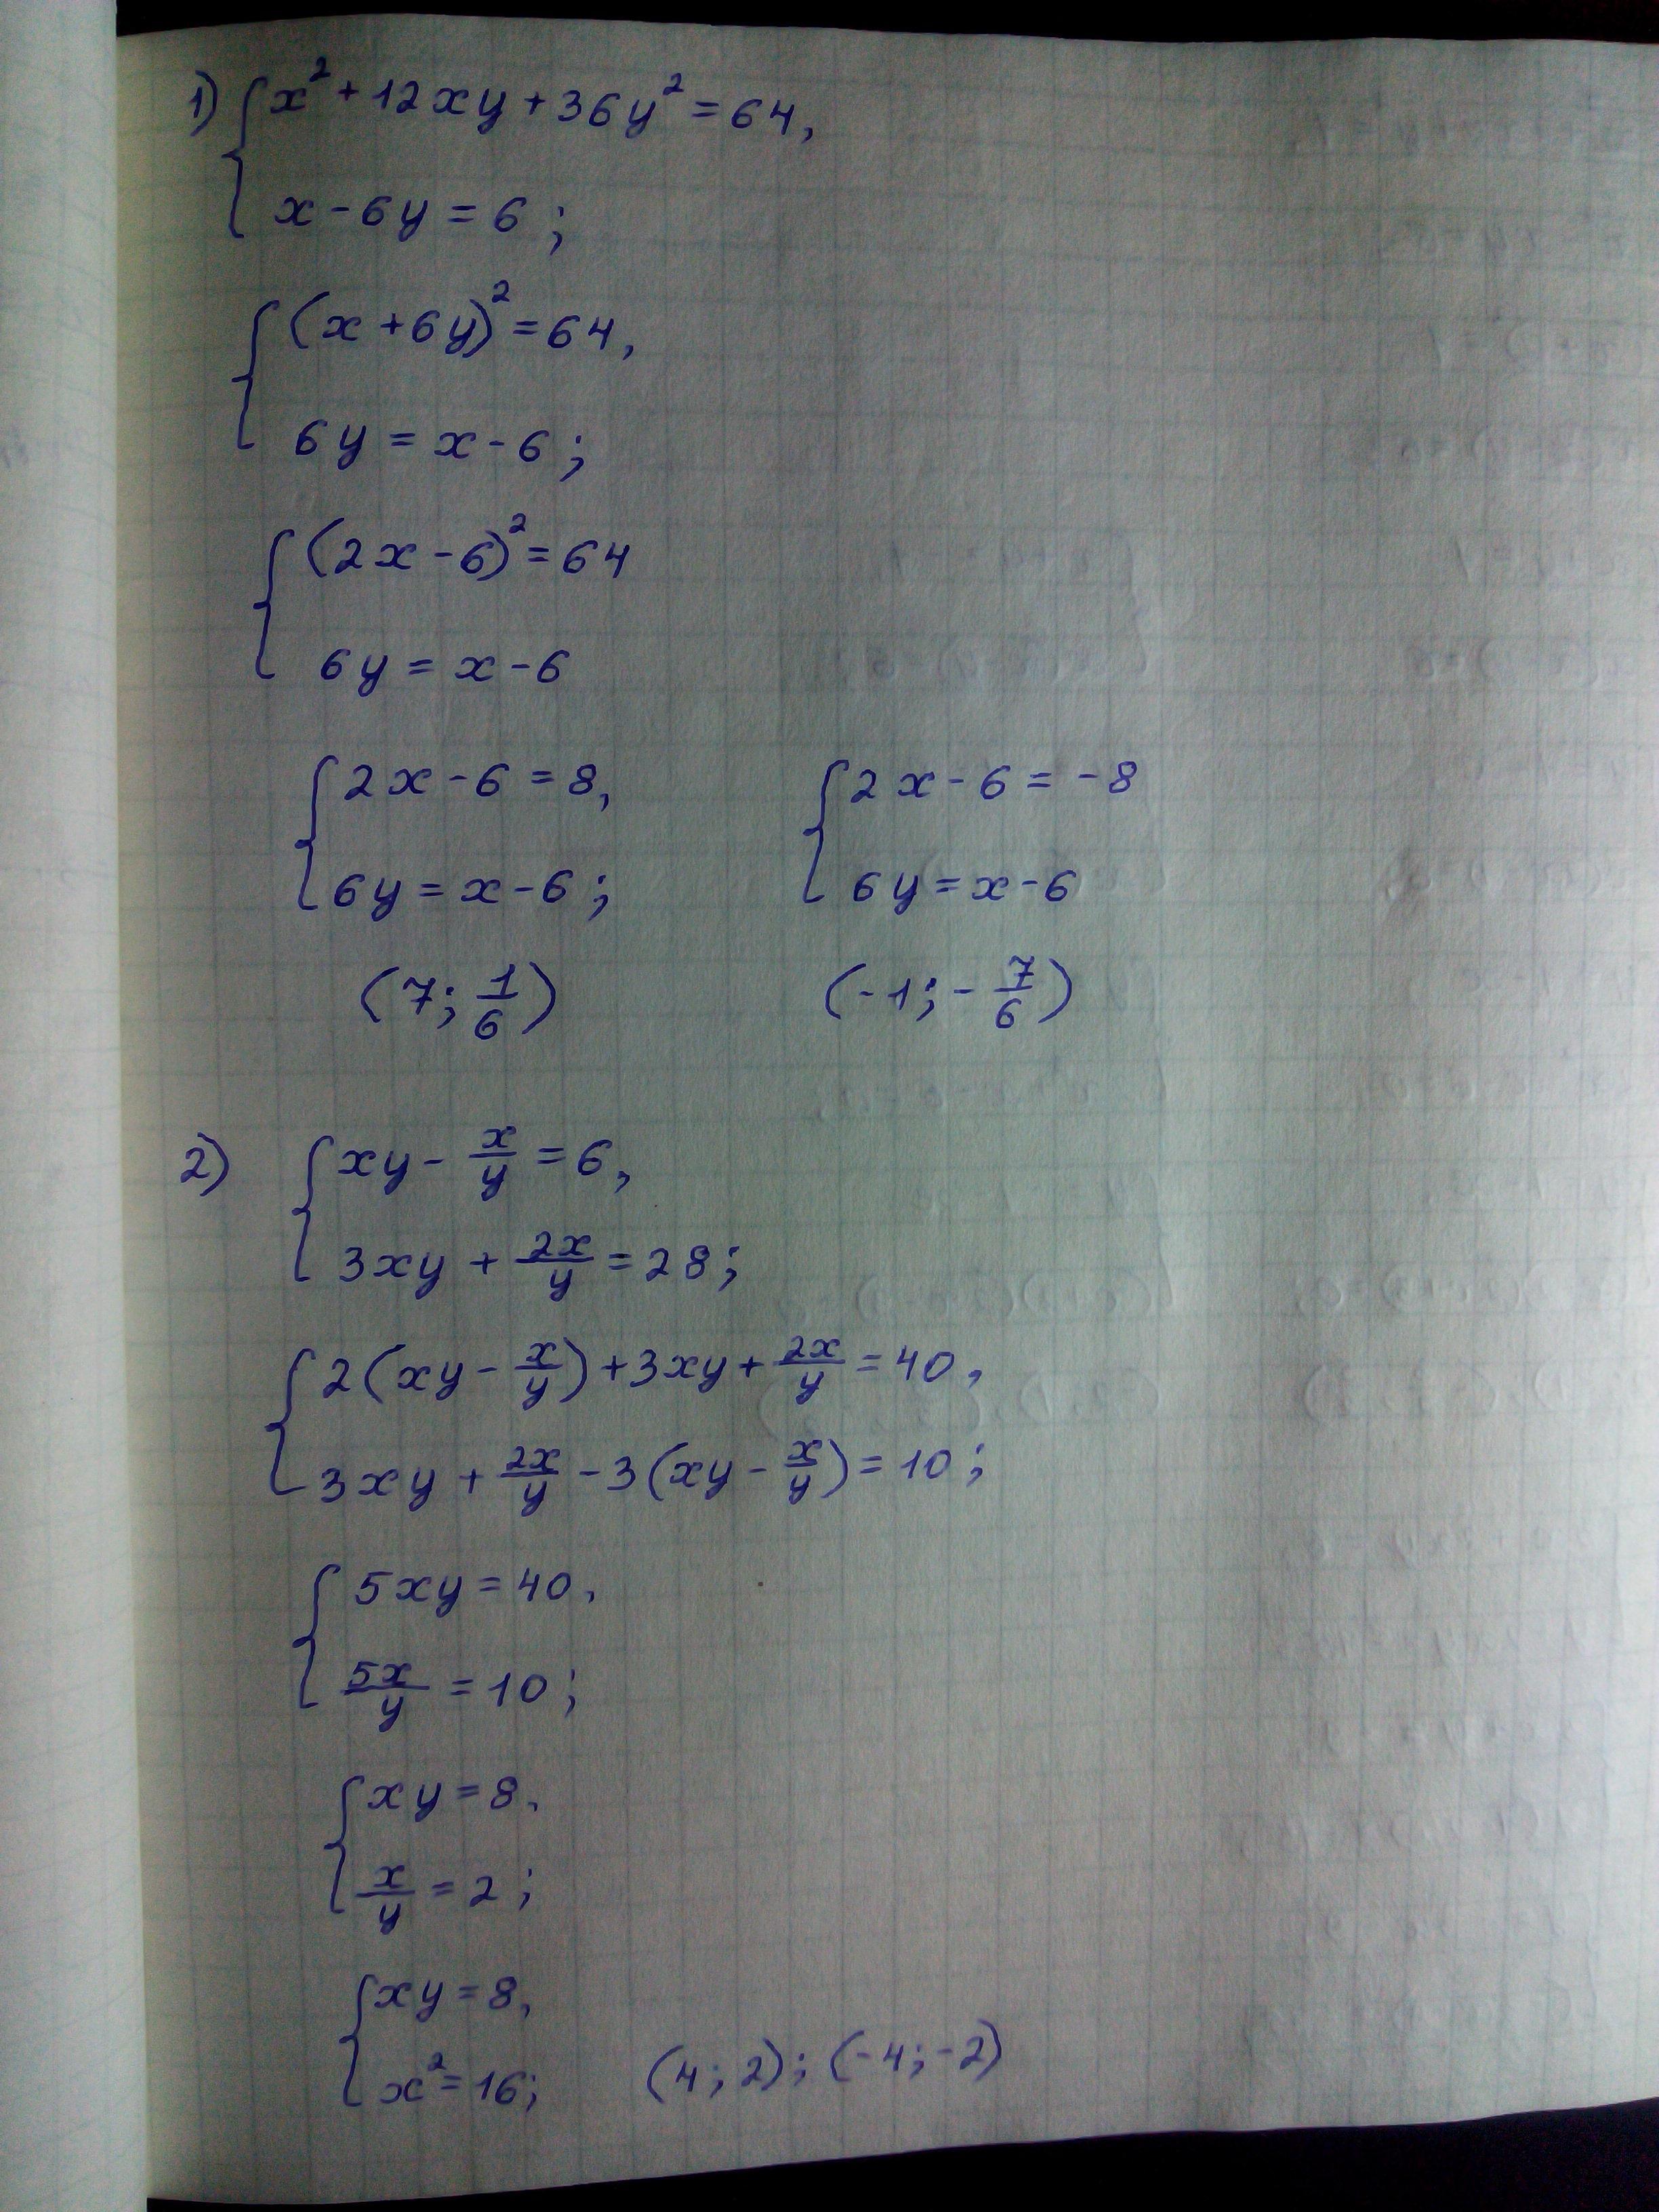 1) { x² + 12xy + 36y² = 64,
x - 6y = 6 ;
{ (x + 6y)² = 64,
6y = x - 6 ;
{ (2x - 6)² = 64
6y = x - 6
{ 2x - 6 = 8, { 2x - 6 = -8
6y = x - 6 ; 6y = x - 6
(7; 1/6) (-1; - 7/6)
2) { xy - x/y = 6,
3xy + 2x/y = 28 ;
{ 2(xy - x/y) + 3xy + 2x/y = 40,
3xy + 2x/y - 3(xy - x/y) = 10 ;
{ 5xy = 40,
5x/y = 10 ;
{ xy = 8,
x/y = 2 ;
{ xy = 8,
x² = 16; (4; 2); (-4; -2)